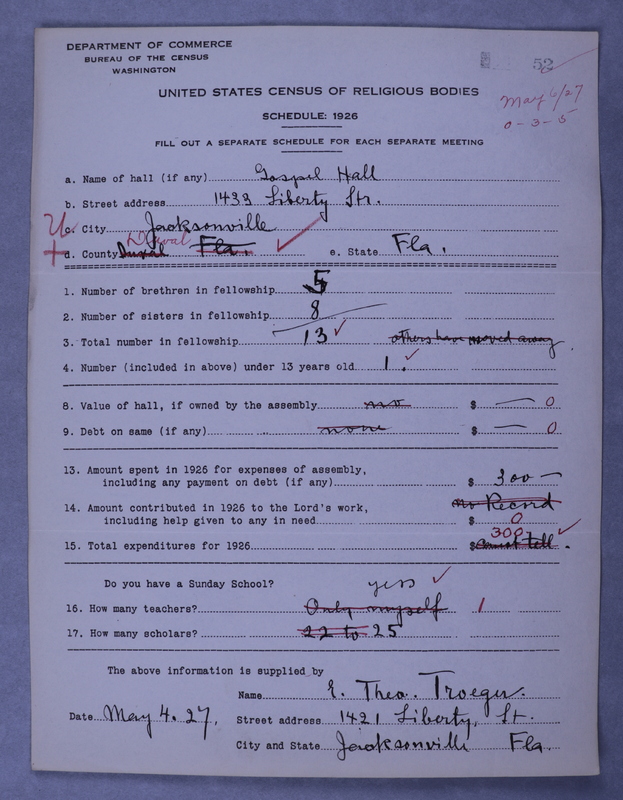 DEPARTMENT OF COMMERCE
BUREAU OF THE CENSUS
WASHINGTON
52
UNITED STATES CENSUS OF RELIGIOUS BODIES
May 6/27
SCHEDULE: 1926
0-3-5
FILL OUT A SEPARATE SCHEDULE FOR EACH SEPARATE MEETING
a. Name of hall (if any) Gospel Hall
b. Street address 1433 Liberty Str.
U. c. City Jacksonville
Duval
d. County Duval Fla. e. State Fla.
1. Number of brethren in fellowship 5
2. Number of sisters in fellowship 8
3. Total number in fellowship 13 others have moved away
4. Number (included in above) under 13 years old 1.
8. Value of hall, if owned by the assembly no $ — 0
9. Debt on same (if any) none $ — 0
13. Amount spent in 1926 for expenses of assembly,
including any payment on debt (if any) $ 300 —
14. Amount contributed in 1926 to the Lord's work, no Record
including help given to any in need $ 0
300
15. Total expenditures for 1926 $ cannot tell.
Do you have a Sunday School? yess
16. How many teachers? Only myself 1
17. How many scholars? 22 to 25
The above information is supplied by
Name E. Theo. Troeger.
Date May 4. 27. Street address 1421 Liberty, St.
City and State Jacksonville Fla.